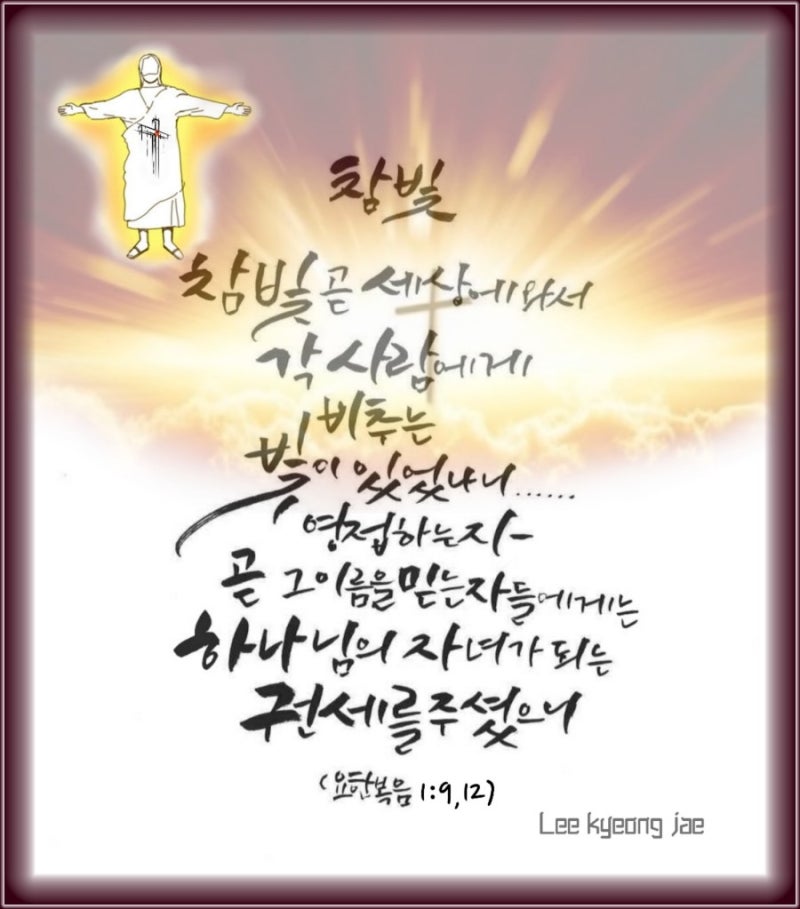 참빛
참빛 곧 세상에 와서
각 사람에게
비추는
빛이 있었나니......
영접하는 자-
곧 그 이름을 믿는 자들에게는
하나님의 자녀가 되는
권세를 주셨으니
(요한복음 1:9,12)
Lee kyeong jae